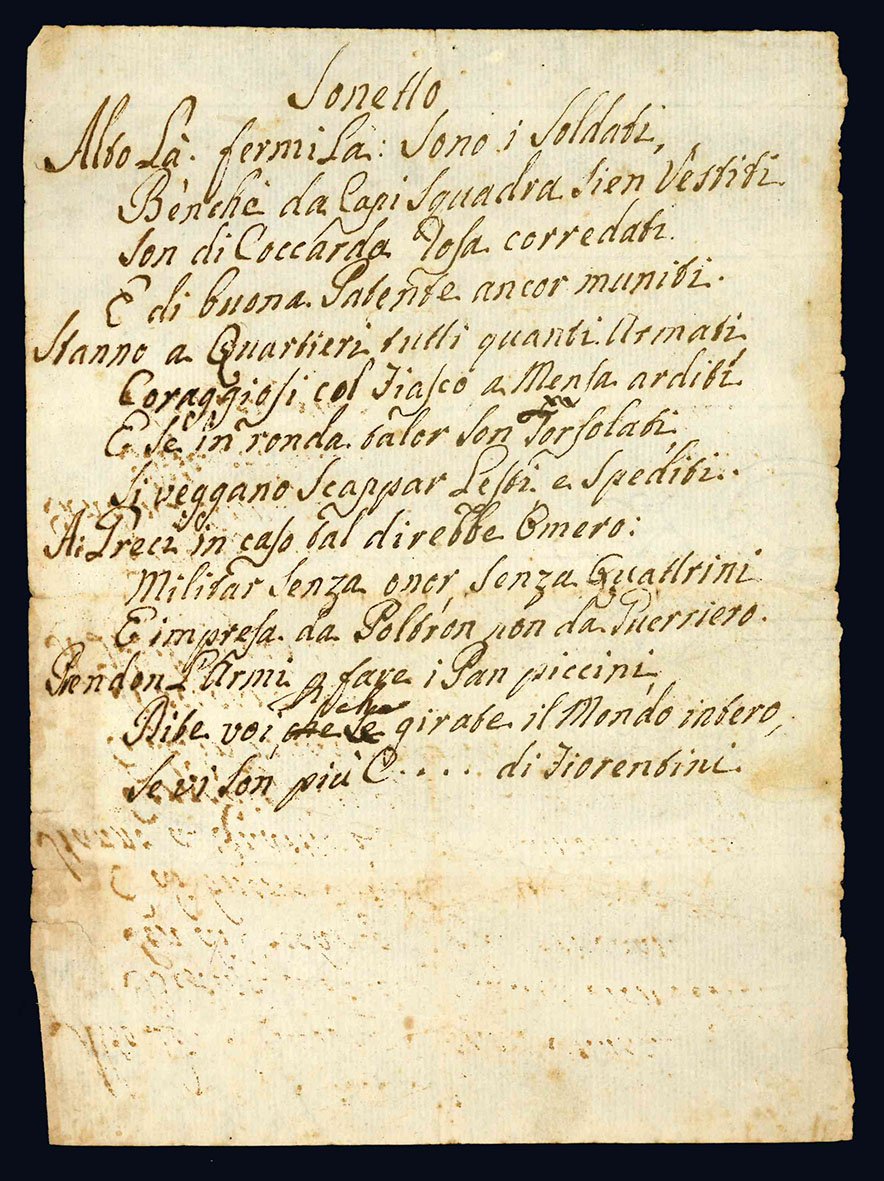 Sonetto
Alto Là. fermi Là: Sono i Soldati,
Bènchè da Capi Squadra Sien Vestiti
Son di Coccarda Tosa corredati.
E di buona Patente ancor muniti.
Stanno a Quartieri tutti quanti Armati
Coraggiosi col Fiasco a Mensa arditi
E Se in ronda talor Son Torsolati
Si veggano Scappar Lesti e Spediti.
Ai Greci in caso tal direbbe Omero:
Militar Senza onor, Senza Quattrini
E impresa da Poltron non da Guerriero.
Prendon L'Armi p fare i Pan piccini,
che
Dite voi, che Se girate il Mondo intero,
Se vi Son più C.... di Fiorentini.